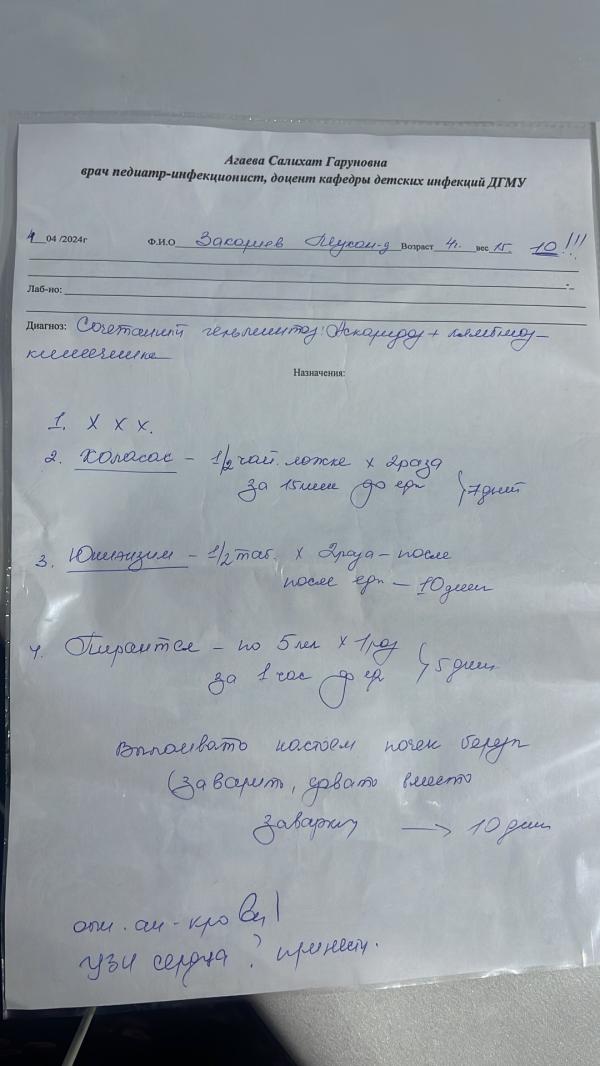 Агаева Салихат Гаруновна
врач педиатр-инфекционист, доцент кафедры детских инфекций ДГМУ
04 /2024г Ф.И.О Закариев Возраст 4г. вес 15 10!!!
Лаб-но:
Диагноз: Сочетаный гельминтоз: Аскаридоз + лямблиоз
кишечника
Назначения:
1. X X X.
2. Холасас - 1/2 чай. ложке x 2 раза
за 15 мин до еды } 7 дней
3. Юниэнзим - 1/2 таб. x 2 раза - после
после еды - 10 дней
4. Пирантел - по 5 мл x 1 раз
за 1 час до еды } 5 дней
Выпаивать настоем почек березы
(заварить, давать вместо
заварки → 10 дней
общ. ан - крови!
УЗИ сердца ? принести.